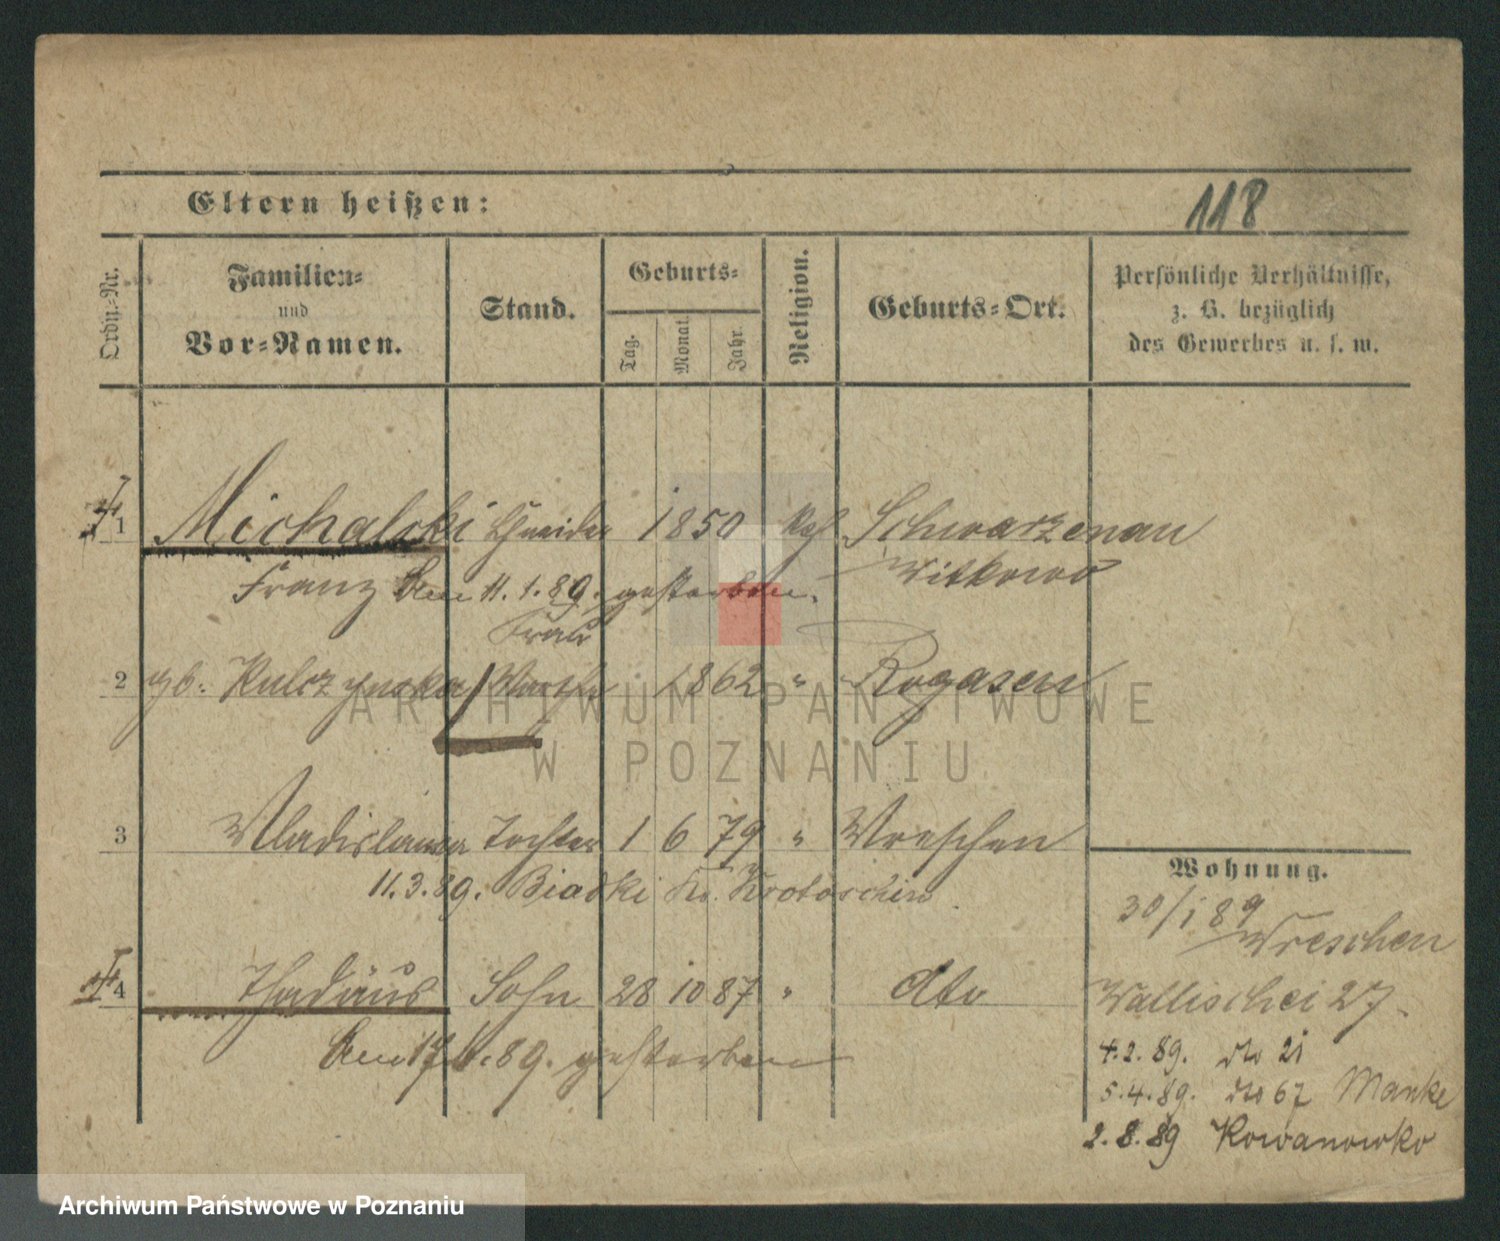 118
Eltern heißen:
Ordn.-Nr.
Familien-
und
Vor-Namen.
Stand.
Geburts-
Tag.
Monat.
Jahr.
Religion.
Geburts-Ort.
Persönliche Verhältnisse,
z. B. bezüglich
des Gewerbes u. s. w.
1 Michalski Schneider 1850 Kath Schwarzenau
Witkowo
Franz Am 11. 1. 89. gestorben.
Frau
2 gb. Kulczynska 1862 " Rogasen
3 Wladislawa Tochter 1 6 79 " Wreschen
11. 3. 89. Biadki Kr. Krotoschin
4 Thadäus Sohn 28 10 87 " dto
Am 17 89. gestorben
Wohnung.
30/1 89 Wreschen
Wallischei 27.
4. 2. 89. do 21
5. 4. 89. do 67 Manke
2. 8. 89 Kowanowko
ARCHIWUM PAŃSTWOWE
W POZNANIU
Archiwum Państwowe w Poznaniu